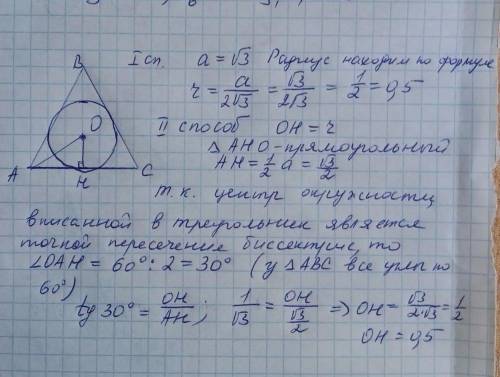 I сп. a = √3 Радиус находим по формуле
r = a/(2√3) = √3/(2√3) = 1/2 = 0,5
II способ OH = r
△AHO - прямоугольный
AH = 1/2 a = √3/2
т.к. центр окружности
вписанной в треугольник является
точкой пересечение биссектрис, то
∠OAH = 60° : 2 = 30° (у △ABC все углы по
60°)
tg 30° = OH/AH; 1/√3 = OH/(√3/2) => OH = √3/(2·√3) = 1/2
OH = 0,5
B
O
A
H
C